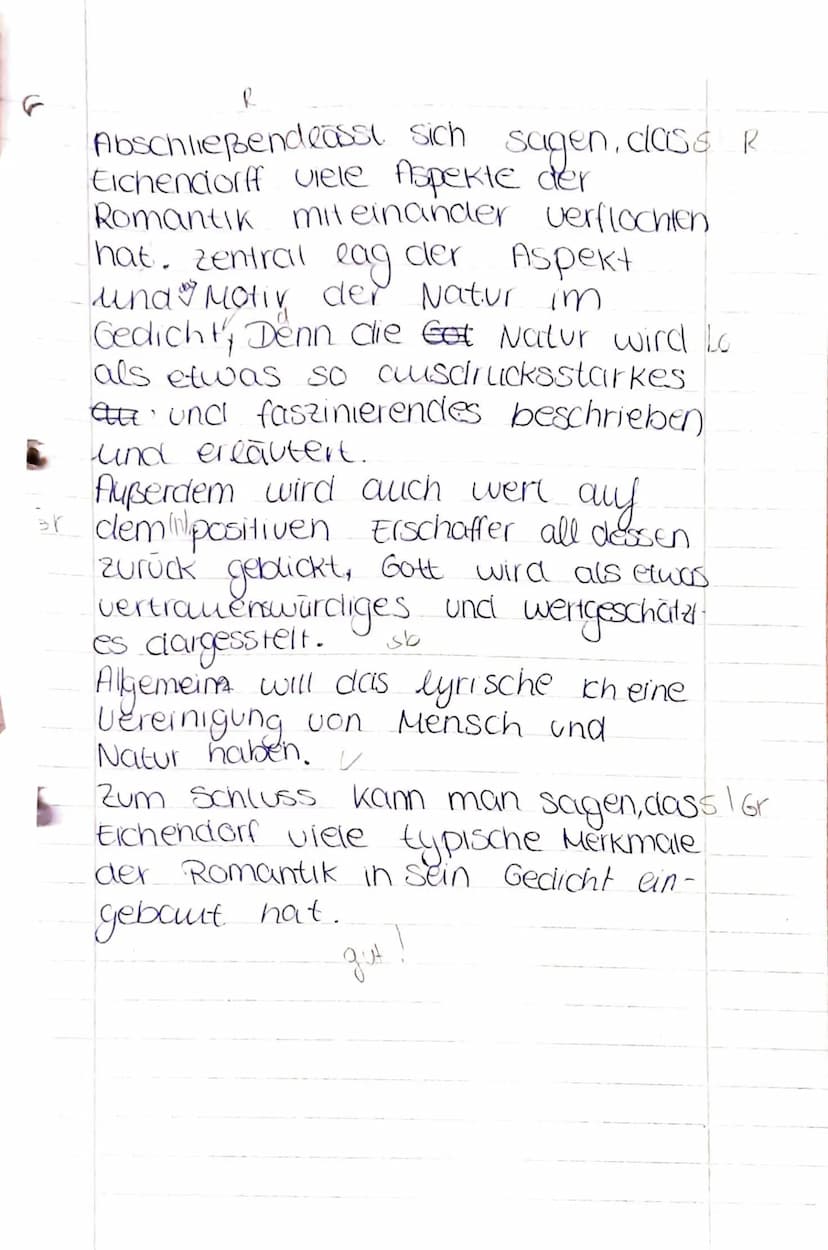 G
R
Abschließendlässt sich sagen, dass R
Eichendorff viele Aspekte der
Romantik miteinander verflochten
hat. zentral lag der Aspekt
und Motiv der Natur im
Gedicht, Denn die Got Natur wird
als etwas so ausdrucksstarkes
und faszinierendes beschrieben
und erläutert.
Außerdem wird auch wert auf
dem (n) positiven Erschaffer all dessen
zurück geblickt, Gott wird als etwas
vertrauenswürdiges und wertgeschätzt-
es dargesstelt. sb
Allgemein will das lyrische Ich eine
Vereinigung von Mensch und
Natur haben. √
Zum Schluss kann man sagen, dass | Gr
Eichendorf viele typische Merkmale
der Romantik in sein Gedicht ein-
gebaut hat.
gut!